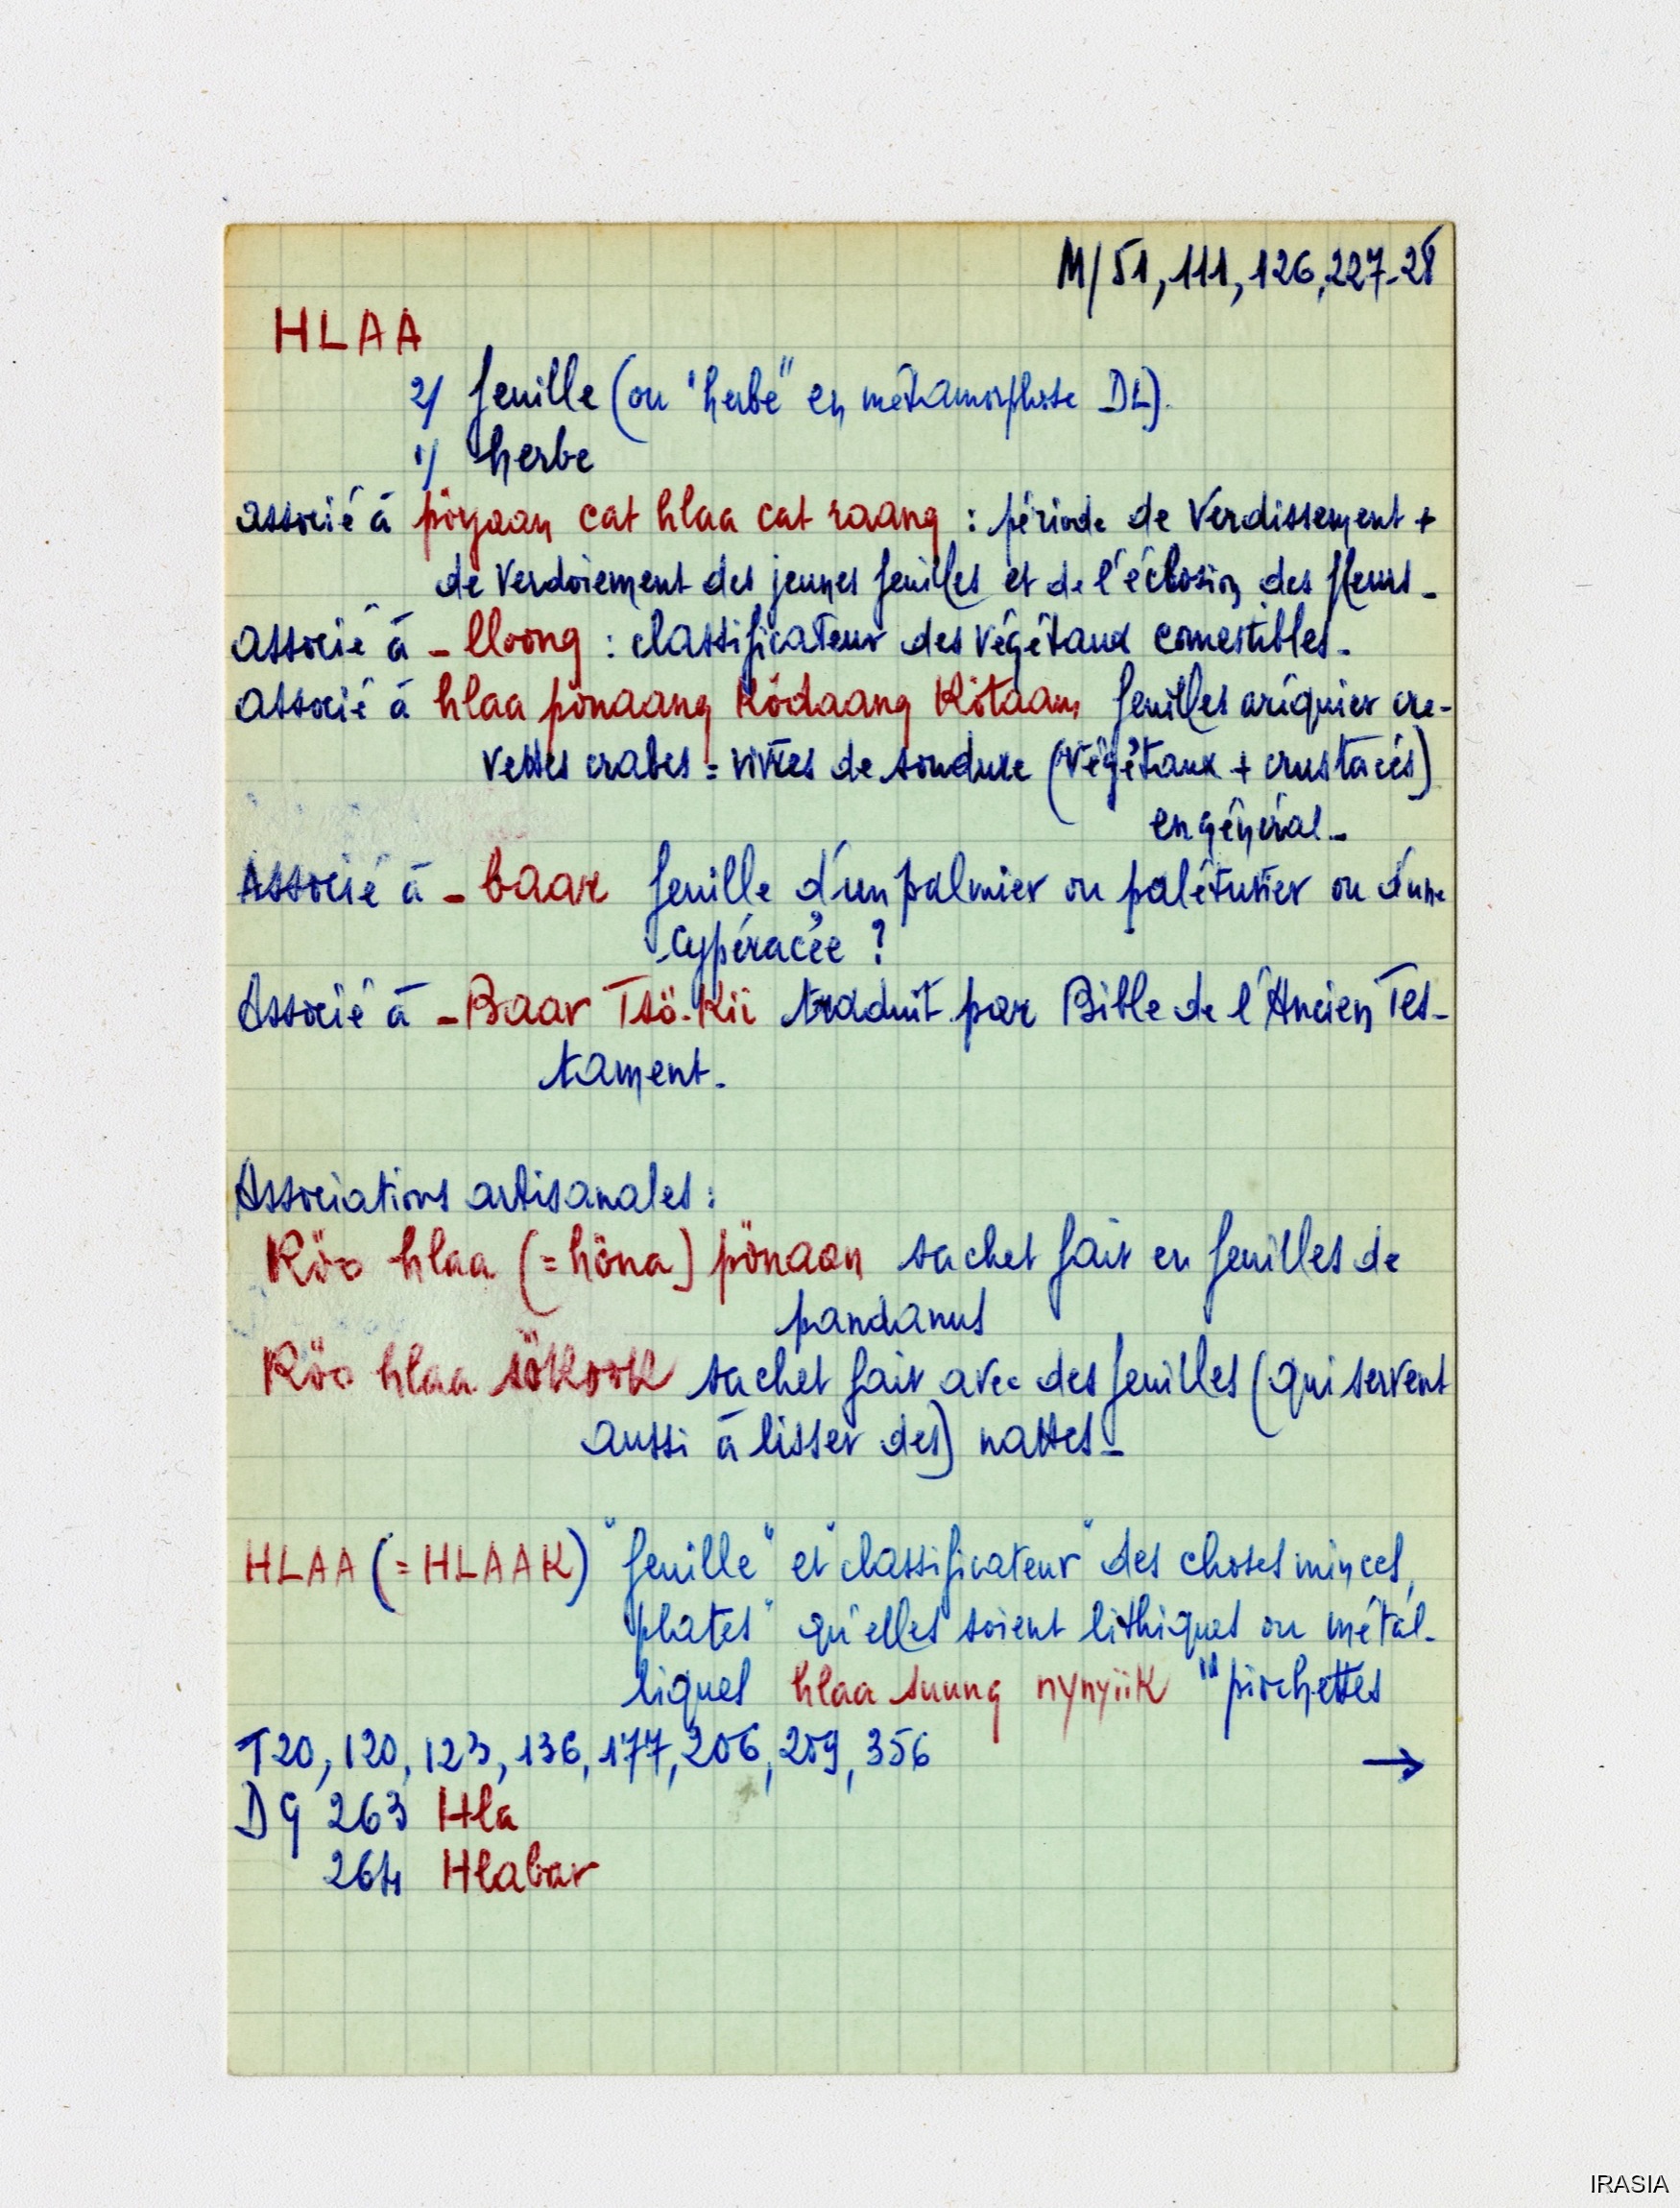 M/51, 111, 126, 227-28
HLAA
2/ feuille (ou "herbe" en métamorphose DL).
1/ herbe
associé à pöyaan cat hlaa cat raang : période de verdissement +
de verdoiement des jeunes feuilles et de l'éclosion des fleurs -
associé à - lloong : classificateur des végétaux comestibles -
associé à hlaa pönaang Ködaang Kötaam feuilles aréquier cre-
vettes crabes = vivres de soudure (végétaux + crustacés)
en général -
Associé à - baar feuille d'un palmier ou palétuvier ou d'une
cypéracée ?
Associé à - Baar Tsö-Kii traduit par Bible de l'Ancien Tes-
tament.
Associations artisanales :
Röo hlaa (= höna) pönaan sachet fait en feuilles de
pandanus
Röo hlaa söKooK sachet fait avec des feuilles (qui servent
aussi à lisser des) nattes -
HLAA (= HLAAK) "feuille" et "classificateur" des choses minces,
plates" qu'elles soient lithiques ou métal-
liques hlaa suung nynyiiK "piochettes
T20, 120, 123, 136, 177, 206, 209, 356 →
DG 263 Hla
264 Hlabar
IRASIA